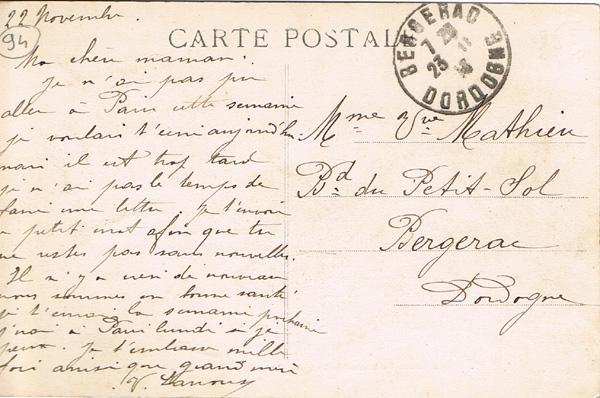 22 Novembre.
94
CARTE POSTALE
BERGERAC
7 20
23 11
DORDOGNE
Ma chère maman.
Je n'ai pas pu
aller à Paris cette semaine
je voulais t'écrire aujourd'hui
mais il est trop tard
je n'ai pas le temps de
faire une lettre je t'envoie
ce petit mot afin que tu
ne restes pas sans nouvelles.
Il n'y a rien de nouveau
nous sommes en bonne santé
la semaine prochaine
j'irai à Paris lundi si je
peux. je t'embrasse mille
fois ainsi que grand mère
V.
Mme Vve Mathieu
Bd du Petit-Sol
Bergerac
Dordogne